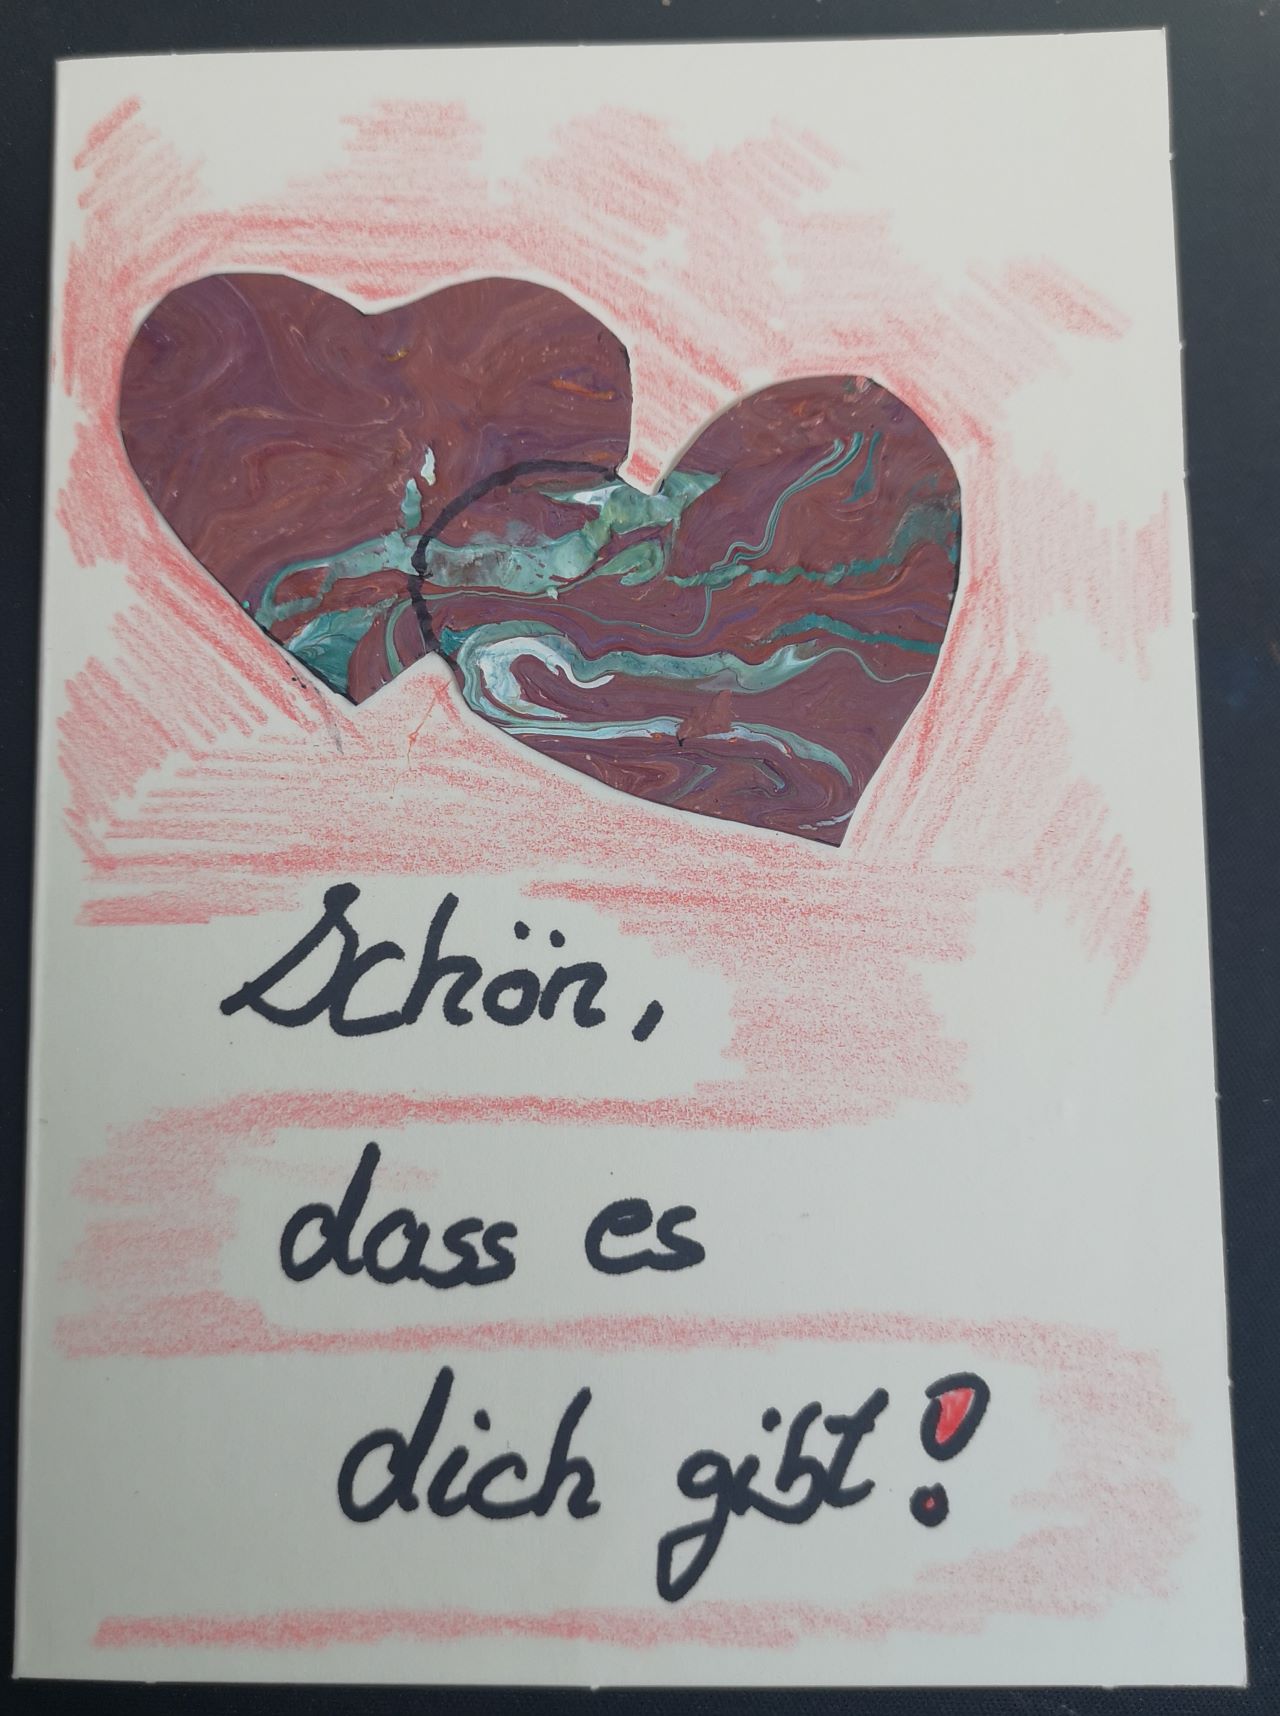 Schön,
dass es
dich gibt!